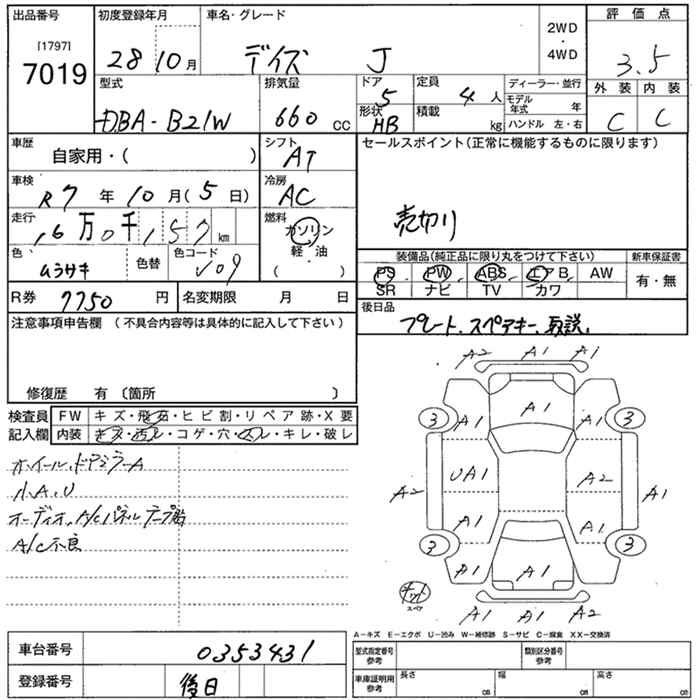 出品番号
[1797]
7019
初度登録年月
28 10月
車名・グレード
デイズ J
2WD
・
4WD
評価点
3.5
外装 内装
C C
型式
DBA-B21W
排気量
660 CC
ドア
5
形状
HB
定員
4人
積載
kg
ディーラー・並行
モデル年式 年
ハンドル 左・右
車歴
自家用・( )
シフト
AT
セールスポイント(正常に機能するものに限ります)
売切り
車検
R7年10月(5日)
冷房
AC
走行
6万0千157km
燃料
ガソリン
軽・油
( )
色
ムラサキ
色替
色コード
装備品(純正品に限り丸をつけて下さい)
PS PW ABS エアB AW
SR ナビ TV カワ
新車保証書
有・無
R券 7750円
名変期限 月 日
後日品
プレート、スペアキー、取説、
注意事項申告欄 (不具合内容等は具体的に記入して下さい)
修復歴 有 〔箇所 〕
検査員記入欄
FW キズ・飛石・ヒビ割・リペア跡・X要
内装 キズ・汚レ・コゲ・穴・スレ・キレ・破レ
ホイール、ドアミラーA
小A、U
オーディオ、A/Cパネルテープ貼
A/C不良
A2 A1 A1
A1
3 A1 A1 3
UA1 A2
A2 A1
A1 A1
3 3
A1 A1 A1
キット
スペア
A1 A1 A2
A-キズ E-エクボ U-凹み W-補修跡 S-サビ C-腐食 XX-交換済
車台番号 0353431
登録番号 後日
型式指定番号 参考
類別区分番号 参考
車庫証明用 参考
長さ cm
幅 cm
高さ cm